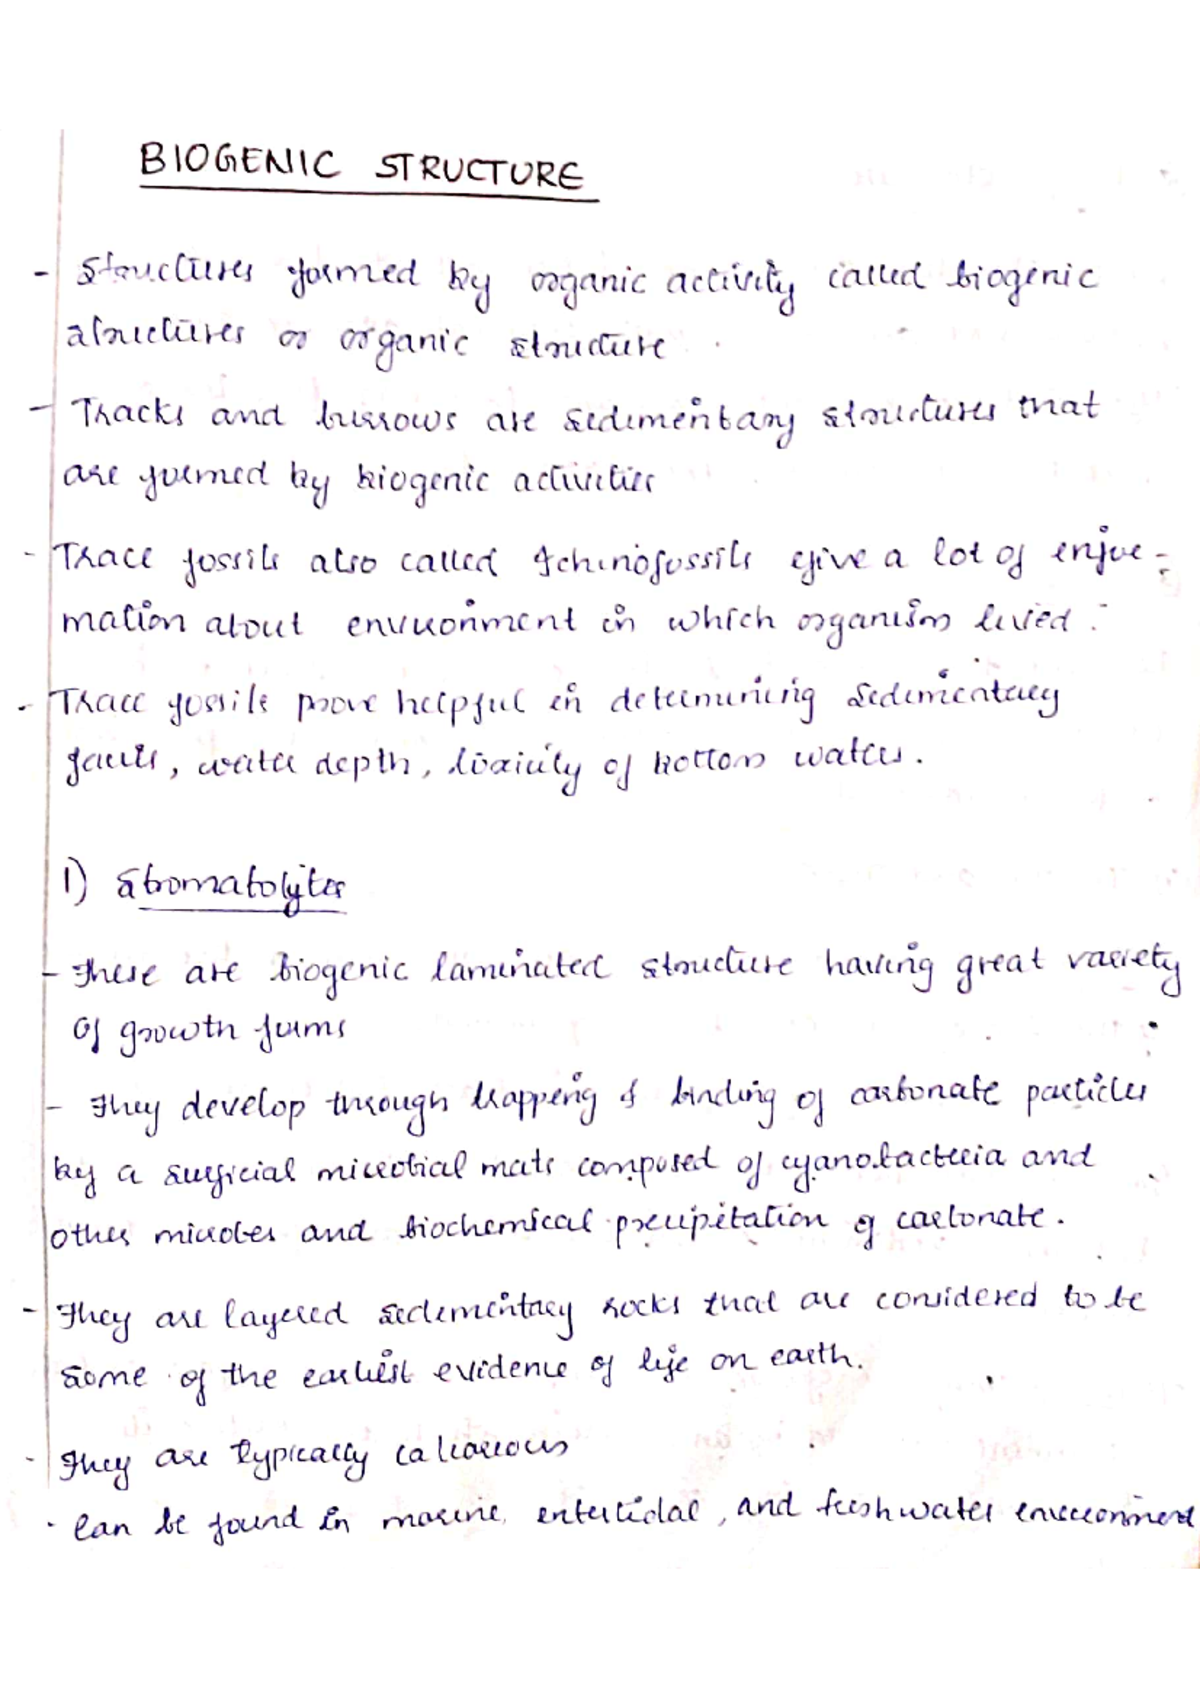 BIOGENIC STRUCTURE
- Structures formed by organic activity called biogenic
structures or organic structure
- Tracks and burrows are sedimentary structures that
are formed by biogenic activities
- Trace fossils also called Ichinofossils give a lot of infor-
mation about environment in which organism lived.
- Trace fossils prove helpful in determining sedimentary
facies, water depth, toxicity of bottom waters.
1) Stromatolytes
- These are biogenic laminated structure having great variety
of growth forms
- They develop through trapping & binding of carbonate particles
by a surficial microbial mats composed of cyanobacteria and
other microbes and biochemical precipitation of carbonate.
- They are layered sedimentary rocks that are considered to be
some of the earliest evidence of life on earth.
- They are typically calcareous
. Can be found in marine, intertidal, and freshwater environment